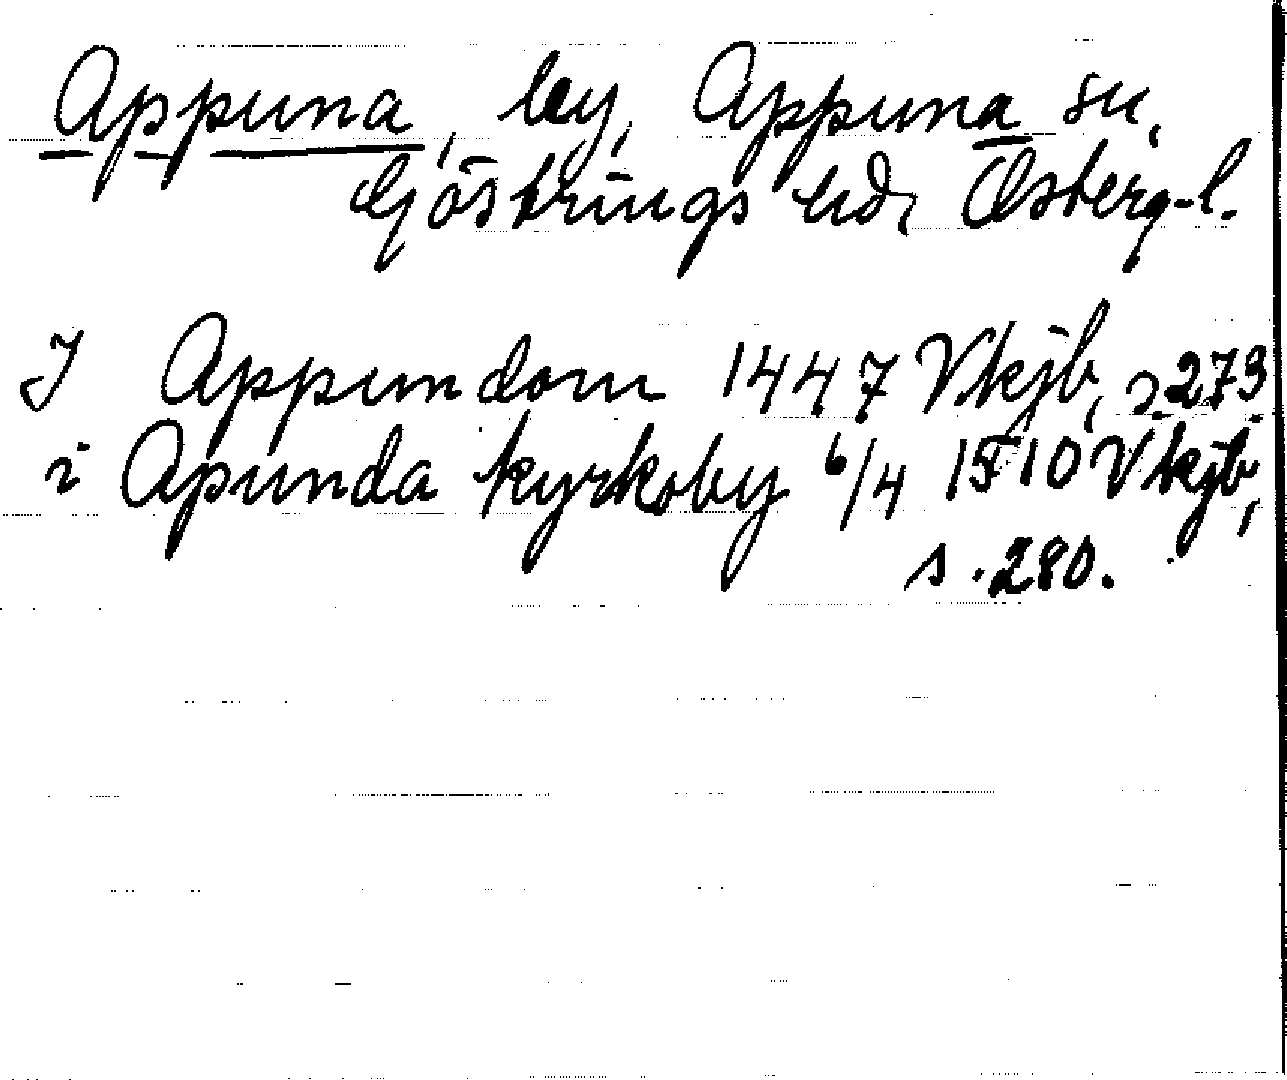 Appuna, by, Appuna sn,
Göstrings hd, Österg-l.
I Appundom 1447 Vkjb, s. 273
i Apunda kyrkoby 6/4 1510 Vkjb,
s. 280.